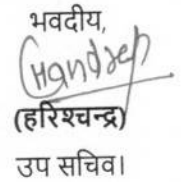 भवदीय,
(हरिश्चन्द्र)
उप सचिव।